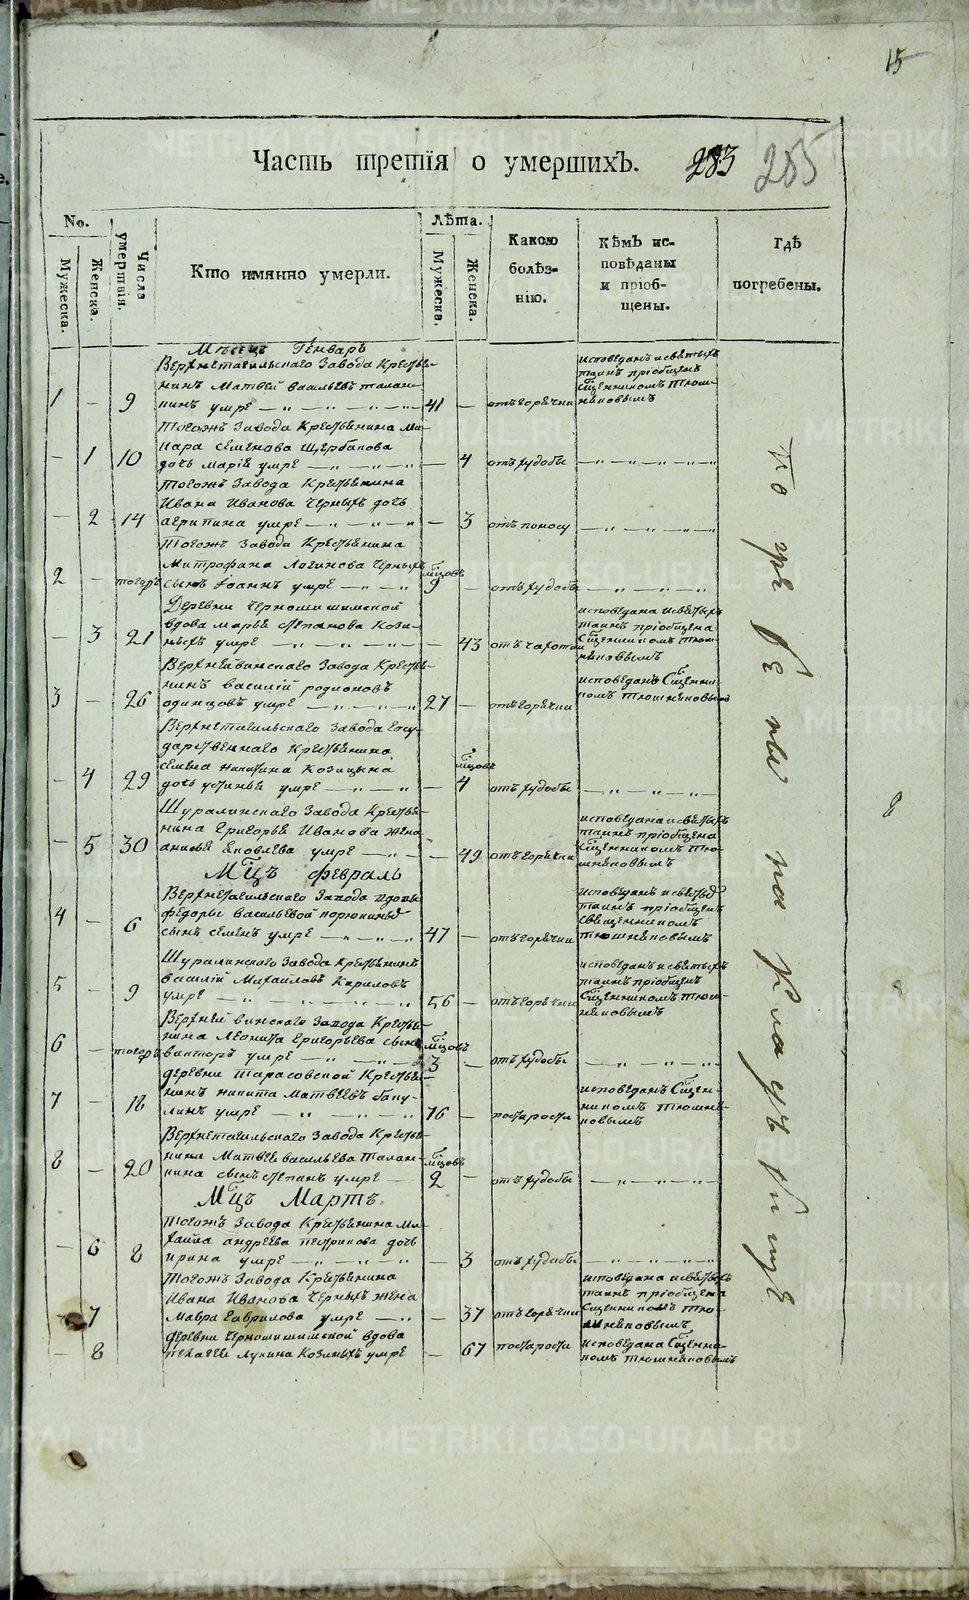 15
Часть третія о умершихъ. 283 285
No.
Мужеска.
Женска.
Числа умертвія.
Кто имянно умерли.
Лѣта.
Мужеска.
Женска.
Какою болѣз-
нію.
Кѣмъ ис-
повѣданы
и пріоб-
щены.
Гдѣ
погребены.
Мѣсецъ Генварь
Верхнетагильскаго Завода Крестья-
нинъ Матвей васильевъ талан-
1 — 9 кинъ умре 41 — отъ горячки
исповеданъ и святыхъ
таинъ пріобщенъ
Сщенникомъ Тюш-
няковымъ
Тогожъ Завода Крестьянина Ма-
кара Семенова Щербакова
— 1 10 дочь марія умре — 4 отъ худобы
Тогожъ Завода Крестьянина
Ивана Иванова Черныхъ дочь
— 2 14 агрипина умре — 3 отъ поносу
Тогожъ Завода Крестьянина
Митрофана Логинова Черныхъ мцовъ
2 — тогожъ сынъ Іоаннъ умре 9 — отъ худобы
Деревни Черношишимской
вдова марья степанова Кози-
— 3 21 ныхъ умре — 43 отъ чахотки
исповедана и святыхъ
таинъ пріобщена
Сщенникомъ Тюш-
няковымъ
Верхнейвинскаго Завода Крестья-
нинъ василій родионовъ
3 — 26 одинцовъ умре 27 — отъ горячки
исповеданъ Сщенни-
комъ Тюшняковымъ
Верхнетагильскаго Завода Госу-
дарственнаго Крестьянина
семена никитина Козицына мцовъ
— 4 29 дочь устинья умре — 4 отъ худобы
Шуралинскаго Завода Крестья-
нина Григорья Иванова жена
— 5 30 анисья Яковлева умре — 49 отъ горячки
исповедана и святыхъ
таинъ пріобщена
Сщенникомъ Тю-
шняковымъ
Мцъ февраль
Верхнетагильскаго Завода вдовы
федоры васильевой
4 — 6 сынъ семенъ умре 47 — отъ горячки
исповеданъ и святыхъ
таинъ пріобщенъ
священникомъ
тюшняковымъ
Шуралинскаго Завода Крестьянинъ
василій Михайловъ Кириловъ
5 — 9 умре 56 — отъ горячки
исповеданъ и святыхъ
таинъ пріобщенъ
Сщенникомъ Тюш-
няковымъ
Верхнейвинскаго Завода Крестья-
нина Леонтья Григорьева сынъ мцовъ
6 — тогожъ викторъ умре 3 — отъ худобы
деревни Тарасовской Крестья-
нинъ никита Матвеевъ баку-
7 — 18 линъ умре 76 — постарости
исповеданъ Сщен-
никомъ Тюшня-
ковымъ
Верхнетагильскаго Завода Крестья-
нина Матвея васильева Талан- мцовъ
8 — 20 кина сынъ степанъ умре 2 — отъ худобы
Мцъ Мартъ
Тогожъ Завода Крестьянина Ми-
хаила андреева петрикова дочь
— 6 8 ирина умре — 3 отъ худобы
Тогожъ Завода Крестьянина
Ивана Иванова Черныхъ жена
— 7 мавра Гаврилова умре — 37 отъ горячки
исповедана и святыхъ
таинъ пріобщена
Сщенникомъ Тю-
шняковымъ
деревни Черношишимской вдова
— 8 пелагея лукина Козиныхъ умре — 67 постарости
исповедана Сщенни-
комъ тюшняковымъ
погребены на кладъбище
METRIKI.GASO-URAL.RU